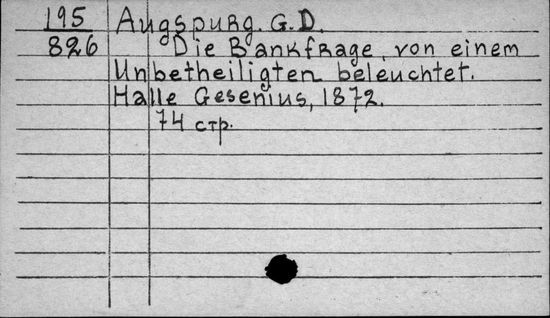 195 Augspurg. G. D.
826 Die Bankfrage, von einem
Unbetheiligten beleuchtet.
Halle Gesenius, 1872.
74 стр.